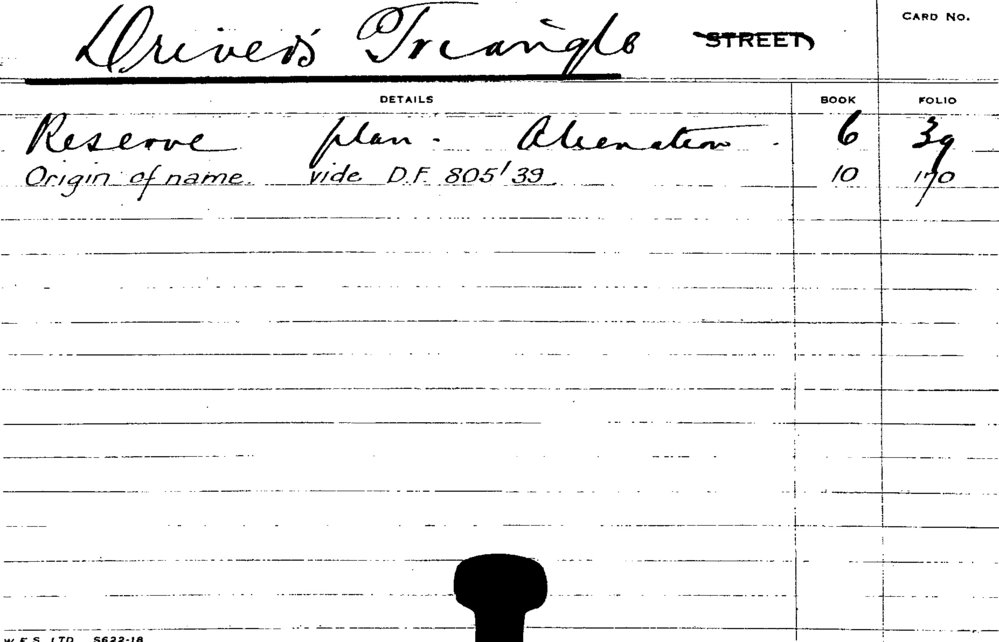 Driver's Triangle STREET CARD NO.
DETAILS BOOK FOLIO
Reserve plan. Alienation. 6 39
Origin of name. vide D.F. 805'39 10 170
W.E.S. LTD. S622-18